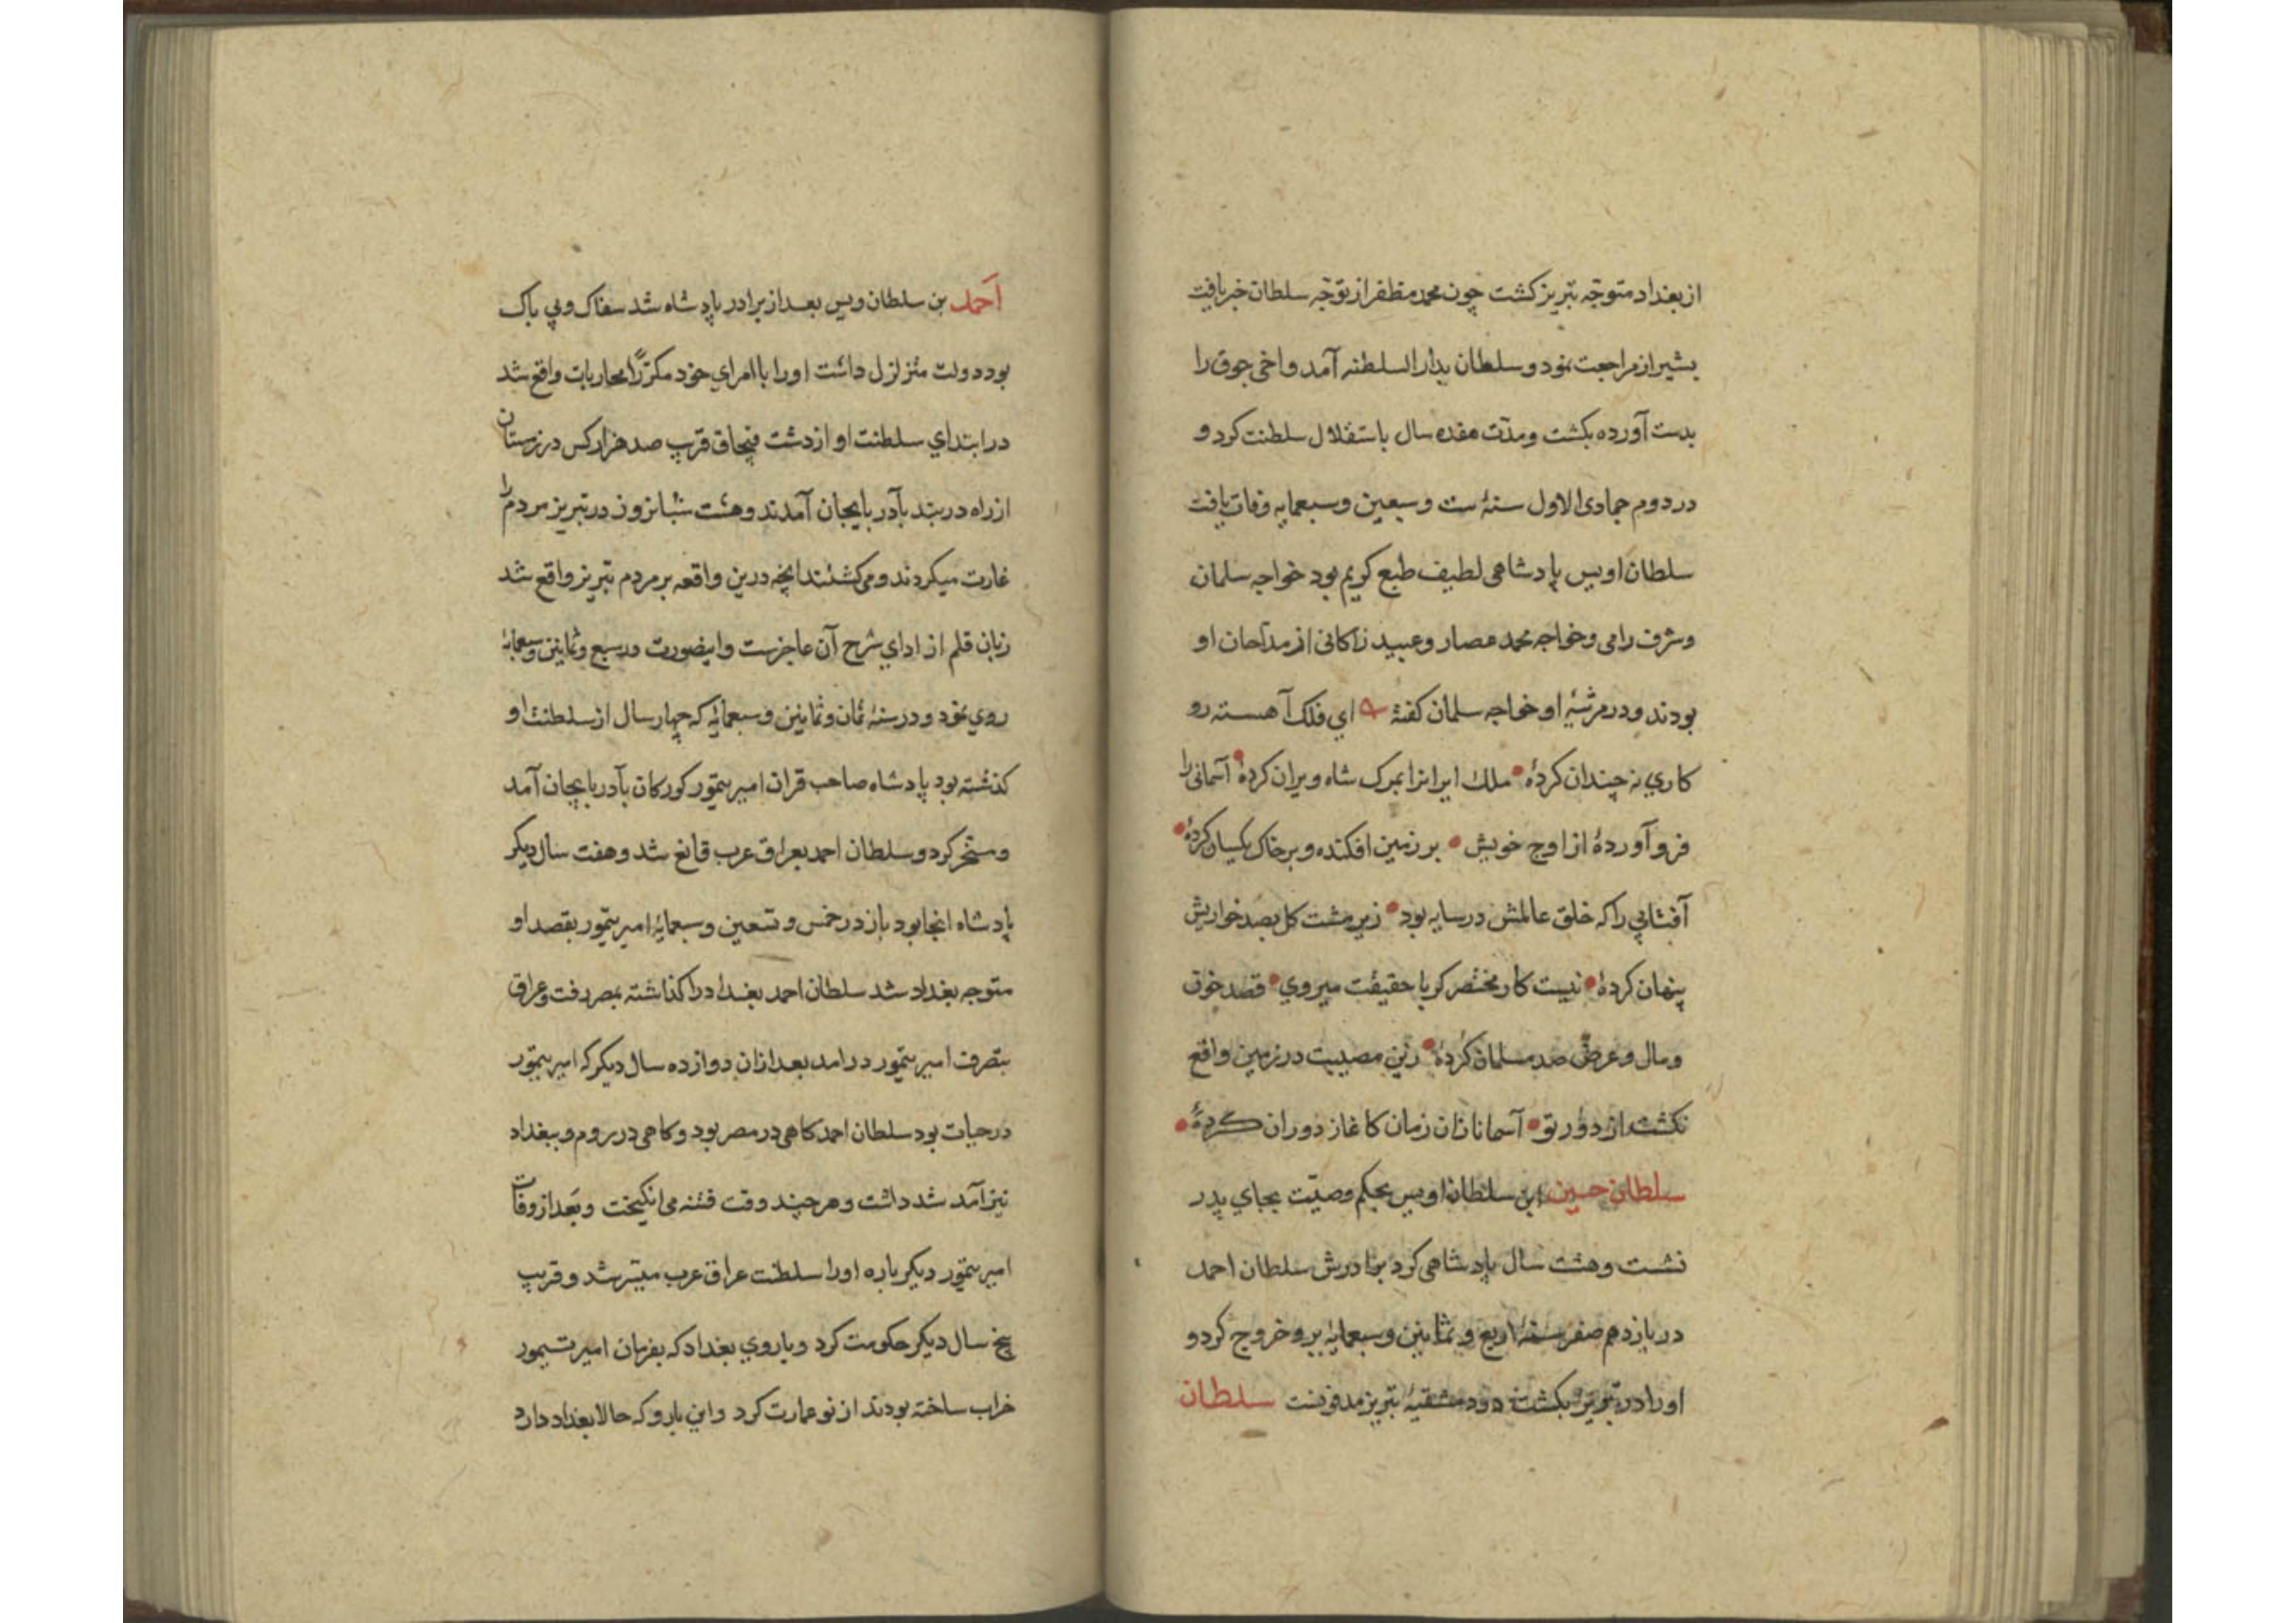 از بغداد متوجّه تبریز کشت چون محمد مظفر از توجّه سلطان خبر یافت
بشیراز مراجعت نمود و سلطان بدار السلطنه آمد و اخی جوق را
بدست آورده بکشت و مدّت هفده سال باستقلال سلطنت کرد و
در دوم جمادی الاول سنهٔ ست و سبعین و سبعمایه وفات یافت
سلطان اویس پادشاهی لطیف طبع کریم بود خواجه سلمان
و شرف رامی و خواجه محمد عصار و عبید زاکانی از مدّاحان او
بودند و در مرثیهٔ او خواجه سلمان کفتهٔ ای فلک آهسته رو
کاری نه چندان کردهٔ ملک ایرانرا بمرک شاه ویران کردهٔ آسمانی را
فرو آوردهٔ از اوج خویش بر زمین افکنده و بر خاک یکسان کردهٔ
آفتابی را که خلق عالمش در سایه بود زیر مشت کل بصد خواریش
پنهان کردهٔ نیست کار مختصر کر با حقیقت میروی قصد خون
و مال و عرض صد مسلمان کردهٔ زین مصیبت در زمین واقع
نکشت از دور تو آسمانا زان زمان کاغاز دوران کردهٔ
سلطان حسین ابن سلطان اویس بحکم وصیّت بجای پدر
نشست و هشت سال پادشاهی کرد برادرش سلطان احمد
در یازدهم صفر سنهٔ اربع و ثمانین و سبعمایه برو خروج کرد و
او را در تبریز بکشت و در دمشقیهٔ تبریز مدفونست سلطان
احمد بن سلطان ویس بعد از برادر پادشاه شد سفاک و بی باک
بود دولت متزلزل داشت او را با امرای خود مکرّرًا محاربات واقع شد
در ابتدای سلطنت او از دشت قبچاق قرب صد هزار کس در زمستان
از راه دربند بآذربایجان آمدند و هشت شبانروز در تبریز مردم را
غارت میکردند و می کشتند انچه درین واقعه بر مردم تبریز واقع شد
زبان قلم از ادای شرح آن عاجزست و اینصورت در سبع و ثمانین و سبعمایهٔ
روی نمود و در سنهٔ ثمان و ثمانین و سبعمائه که چهار سال از سلطنت او
کذشته بود پادشاه صاحب قران امیر تیمور کورکان بآذربایجان آمد
و مسخّر کرد و سلطان احمد بعراق عرب قانع شد و هفت سال دیکر
پادشاه انجا بود باز در خمس و تسعین و سبعمایهٔ امیر تیمور بقصد او
متوجه بغداد شد سلطان احمد بغداد را کذاشته بمصر رفت و عراق
بتصرف امیر تیمور در امد بعد ازان دوازده سال دیکر که امیر تیمور
در حیات بود سلطان احمد کاهی در مصر بود و کاهی در روم و ببغداد
نیز آمد شد داشت و هر چند وقت فتنه می انکیخت و بعد از وفات
امیر تیمور دیکر باره او را سلطنت عراق عرب میسّر شد و قریب
پنج سال دیکر حکومت کرد و باروی بغداد که بفرمان امیر تیمور
خراب ساخته بودند از نو عمارت کرد و این بارو که حالا بغداد دارد